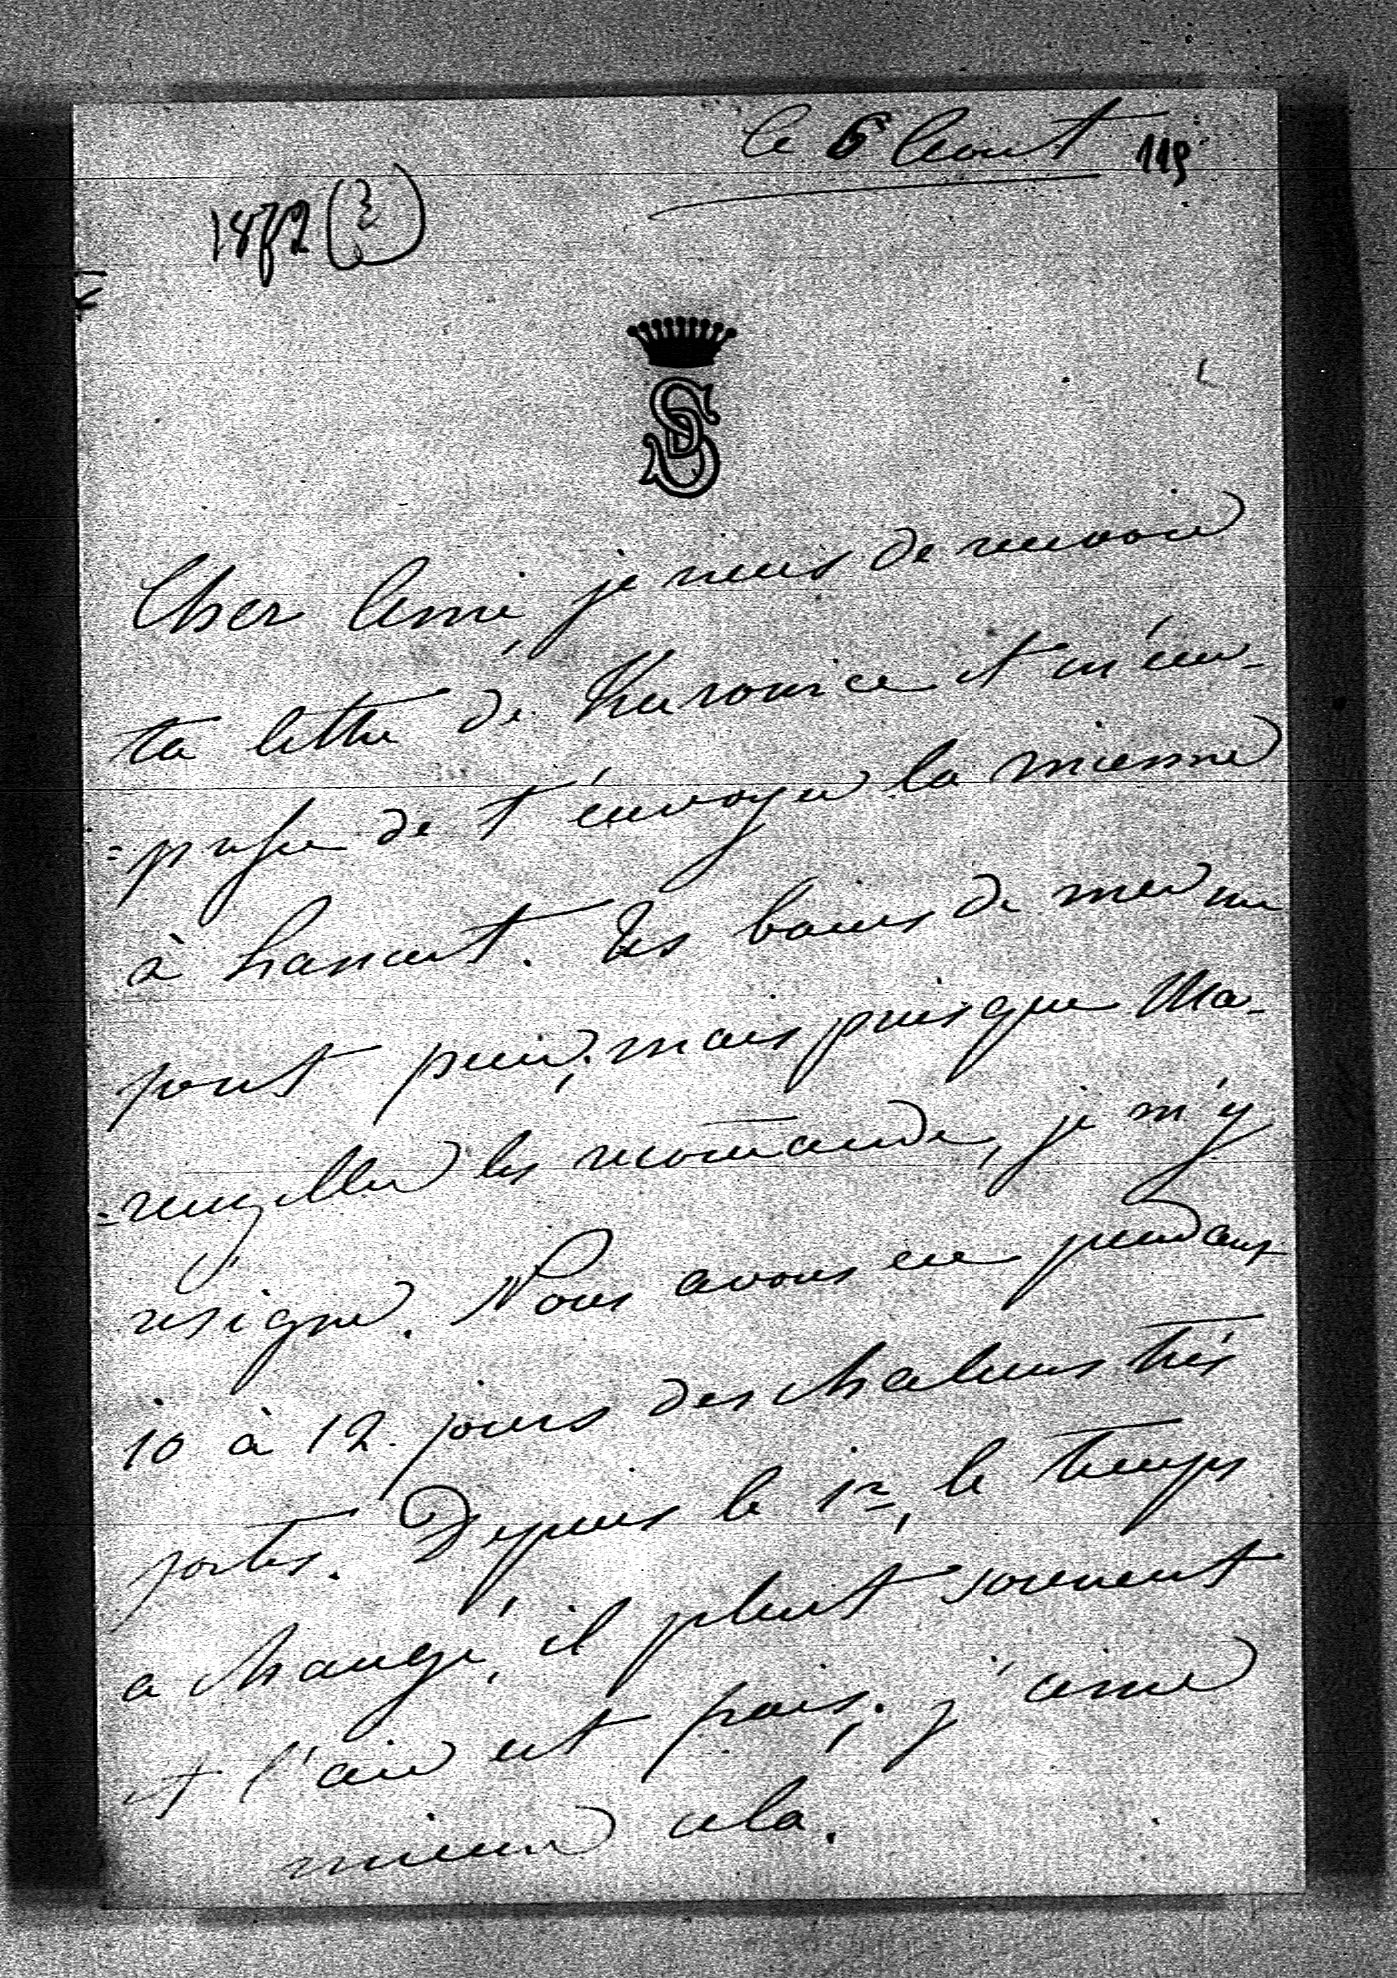 le 6 Aout 119
1872 (?)
SD
Cher Ami, je viens de recevoir
ta lettre de et m'em-
=presse de t'énvoyer la mienne
à hanau. Les bains de mer me
font peur, mais puisque Ma-
=rcuzeller les recomande, je m'y
resigne. Nous avons eu pendant
10 à 12 jours des chaleurs très
fortes. Depuis le 1r, le temps
a changé, il pleut souvent
et l'air est frais; j'aime
mieux cela.